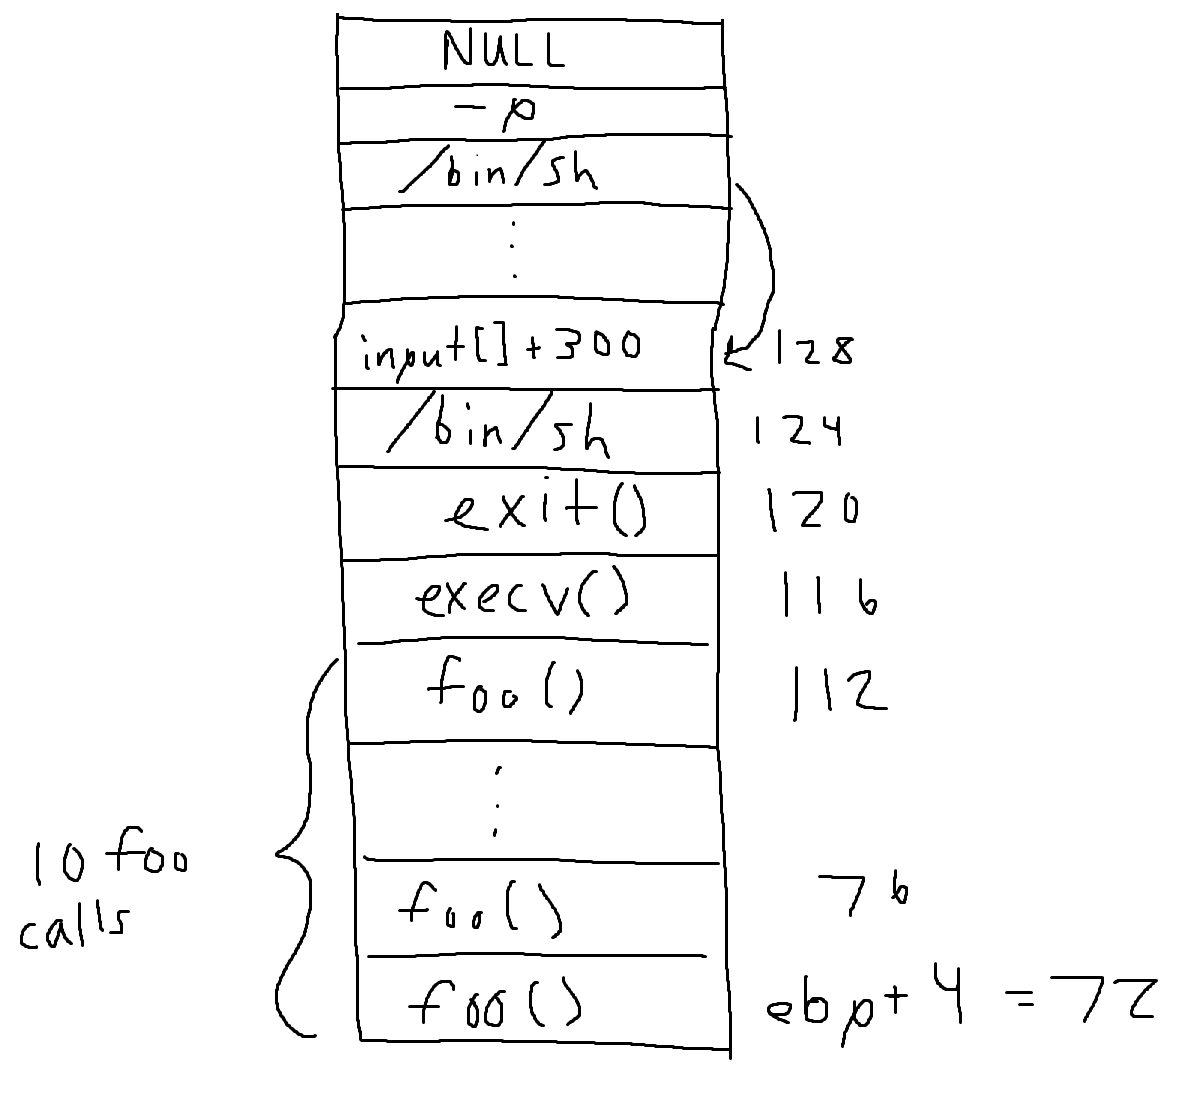 NULL
-p
/bin/sh
input[]+300 128
/bin/sh 124
exit() 120
execv() 116
foo() 112
10 foo
calls
foo() 76
foo() ebp+4 =72